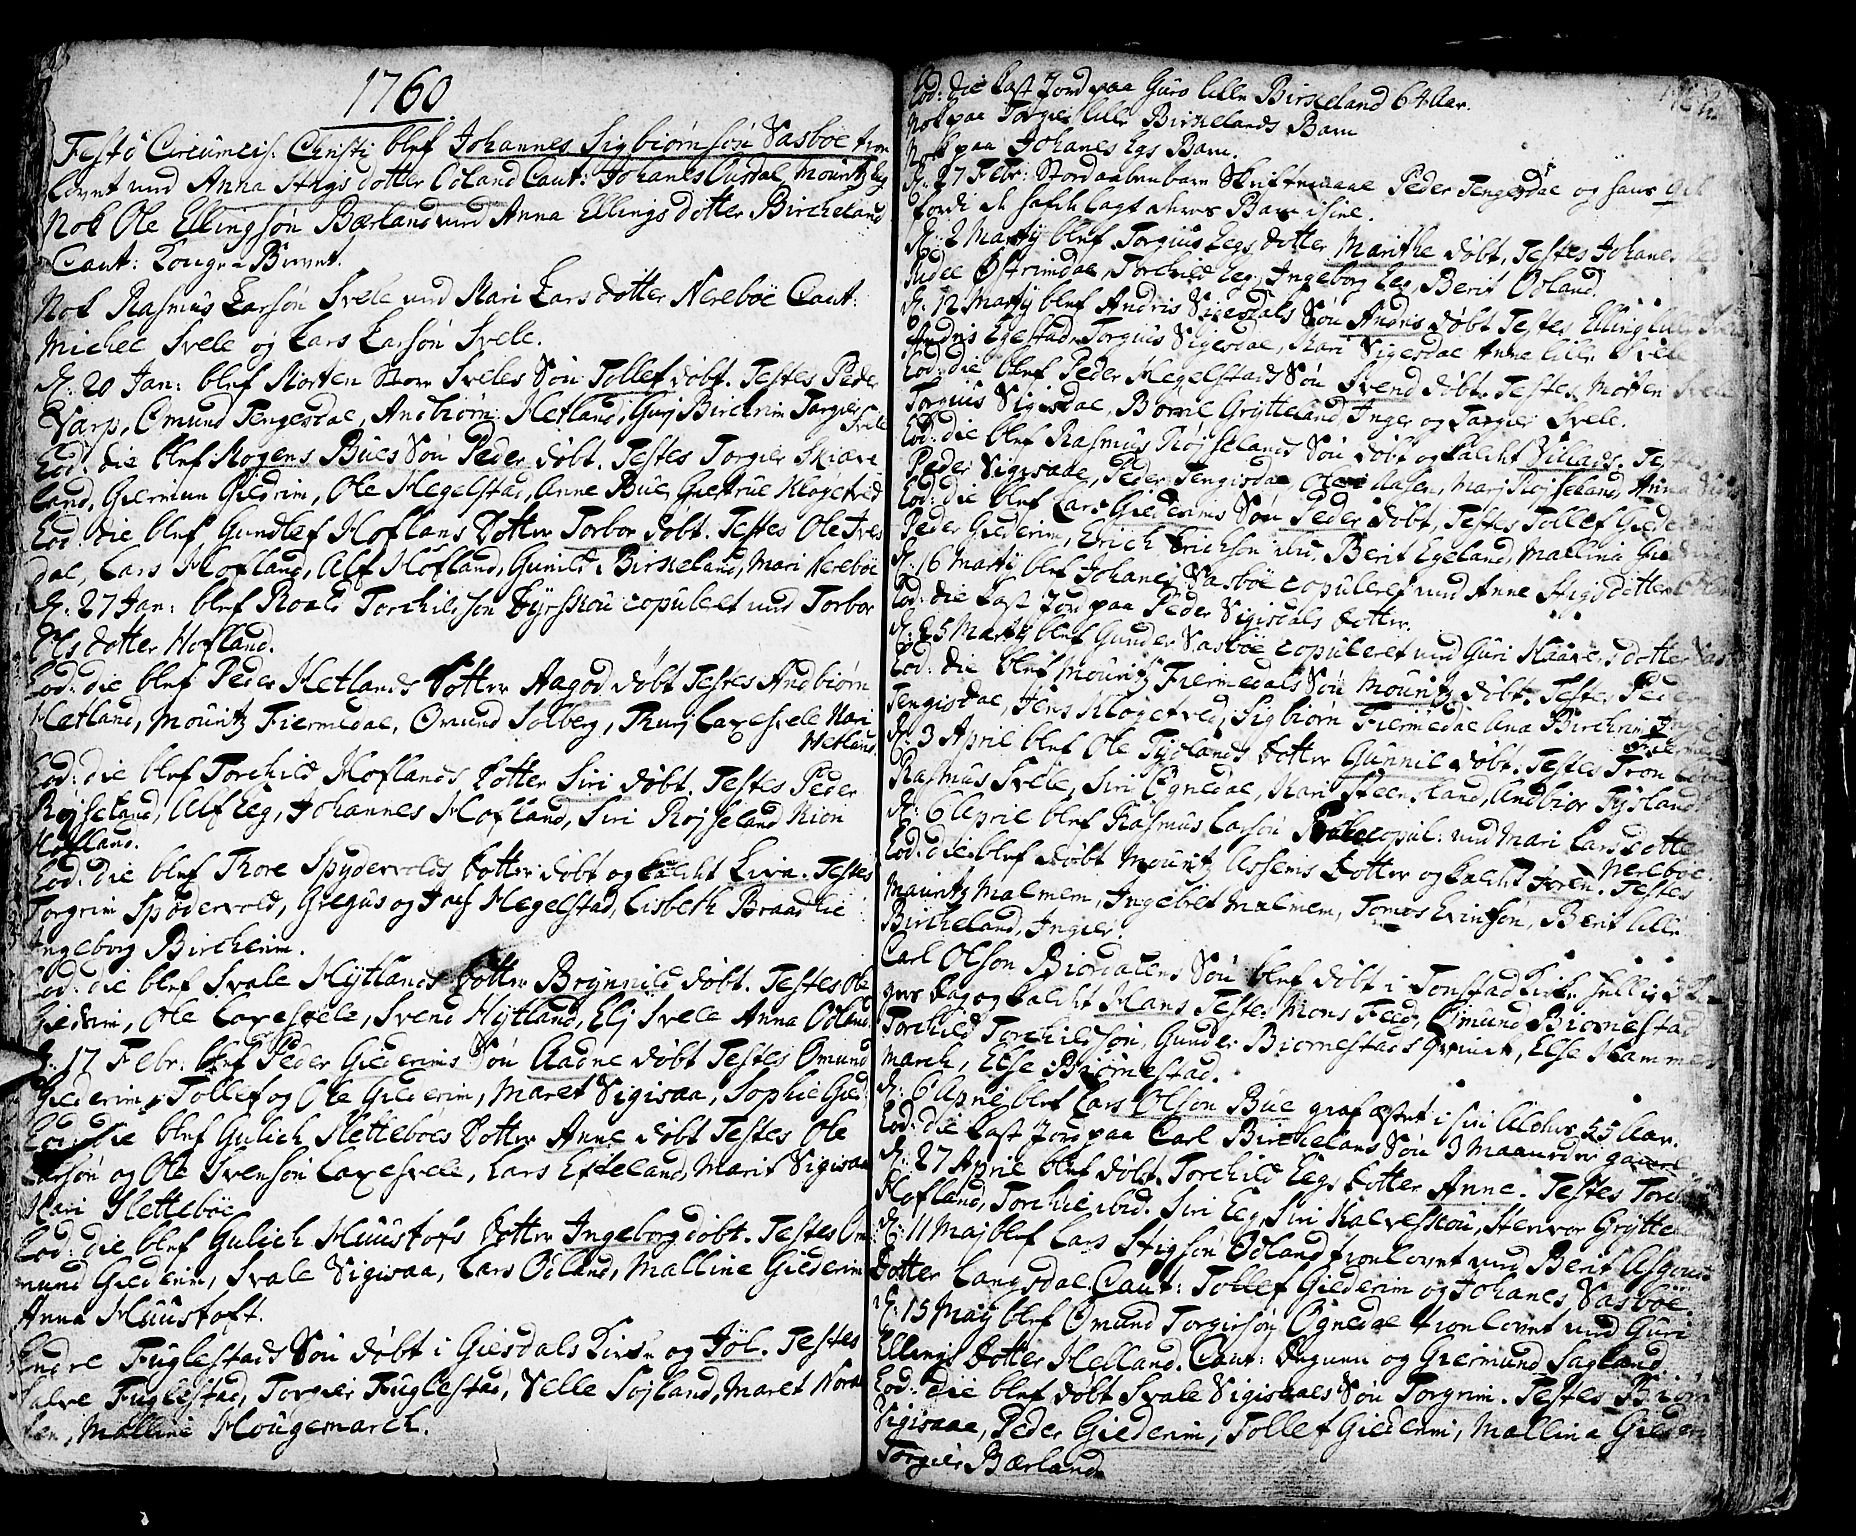 1760.
Festo Circumcis. Christi blef Johannes Sigbiørnsøn Vasbøe tron
lovet med Anna Stigs dotter Ødland Caut: Johanes Eeg
Nok Ole Ellingsøn Bærland med Anna Ellings dotter Bircheland
Caut:
Nok Rasmus Larsøn Svele med Mari Lars dotter Nerebøe Caut:
Michel Svele og Lars Larsøn Svele.
D: 20 Jan: blef Morten Store Sveles Søn Tollef døbt. Testes Peder
Varp, Omund Tengesdae, Andbiørn Hetland, Guri Birchrim Torgier
Svele
Eod: die blef Mogens Bues Søn Peder døbt. Testes Torgier Skiæve
land, Giermun Giedrim, Ole Hegelstad, Anne Bue, Giertrue Klogetved
Eod: die blef Gundlef Hoflans Dotter Torbor døbt. Testes Ole Ives
dae, Lars Hofland, Alf Hofland, Gunild Birkeland, Mari Nerebøe
D: 27 Jan: blef Roald Torchildsøn copuleret med Torbor
Ols dotter Hofland.
Eod: die blef Peder Hetlands Dotter Aagod døbt Testes Andbiørn
Hetland, Mouritz Fiermedae, Omund Solberg, Thurj Laxesvele Mari
Hetland
Eod: die blef Torchild Hoflands Dotter Siri døbt. Testes Peder
Røjseland, Alf Eeg, Johannes Hofland, Siri Røjseland Mion
Hofland.
Eod: die blef Thore Spydervolds Dotter døbt og kaldt Liva. Testes
Torgrim Spødervold, Gregus og Hegelstad, Lisbeth Braadlie
Ingeborg Bircherim.
Eod: die blef Svale Hytlands Dotter Brynnild døbt. Testes Ole
Giedrim, Ole Laxesvele, Svend Hytland, Elj Svele Anna Odland
D: 17 Febr: blef Peder Giederims Søn Aadne døbt Testes Omund
Giederim, Tollef og Ole Giederim, Maret Sigisaa, Sophie Gied
Eod: die blef Gulich Slettebøes Dotter Anne døbt Testes Ole
Larsøn og Ole Svensøn Laxesvele, Lars Efteland, Marit Sigisaa
Mari Slettebøe
Eod: die blef Gulich Muustofs Dotter Ingeborg døbt. Testes Om
mund Giederim, Svale Sigisaa, Lars Odland, Malline Giederim
Anna Muustoft.
Endre Fuglestads Søn døbt i Giesdals Kirke og Jøl. Testes
Salve Fuglestad, Torgier Fuglestad, Velle Søjland, Maret
Malline Hougemarch.
Eod: die kast Jord paa Guro lille Birkeland 64 Aar.
Nok paa Torgier lille Birkelands Barn
Nok paa Johanes Egs Barn.
D: 27 Febr: Stod aabenbare Skriftemaae Peder Tengesdae og hans
fordi de hafde lagt deres Barn ihiel.
D: 2 Martij blef Torgius Eegs dotter Marithe døbt, Testes Johanes
Østrimdae, Torchild Eeg, Ingeborg Eeg, Berit Odland.
D: 12 Martij blef Andris Sigesdals Søn Andris døbt. Testes Elling lille
Andris Egestad, Torgius Sigesdae, Kari Sigesdae Anna lille Svele
Eod: die blef Peder Hegelstads Søn Svend døbt. Testes Morten Svele
Torgius Sigisdae, Børre Grytteland, Inger og Torgier Svele.
Eod: die blef Rasmus Røjselands Søn døbt og kaldt Villads. Testes
Peder Sigisdae, Peder Tengisdae, Ole Aasen, Marj Røjseland, Anna
Eod: die blef Lars Giederims Søn Peder døbt, Testes Tollef Giederim
Peder Giederim, Erich Erichsøn ibid. Berit Egeland, Mallina
D: 16 Martij blef Johanes Vasbøe copuleret med Anne Stigsdotter
Eod: die kast Jord paa Peder Sigisdals dotter.
D: 25 Martij blef Gunder Vasbøe copuleret med Guri Haavers dotter
Eod: die blef Mouritz Fiermedals Søn Mouritz døbt. Testes Peder
Tengisdae, Jens Klogetved, Sigbiørn Fiermedae Ana Birchrim
D: 3 April blef Ole Tysslands dotter Gunnil døbt. Testes Tron
Rasmus Svele, Siri Ognedae, Mari Steensland, Andbior Tysland
D: 6 April blef Rasmus Larsøn copul: med Mari Larsdotter
Nerebøe.
Eod: die blef døbt Mouritz Assems Dotter og kaldt Joren. Testes
Mauritz Malmem, Ingebret Malmem, Tomos Evinsøn, Berit lille
Birkeland, Ingier
Carl Olson Biordalens Søn blef døbt i Tonstad Kirke
gers Dag og kaldt Hans Testes Mons Feed, Omund Biornestad
Torchild Torchildsøn, Gunder Biornestads qvinde, Else Hammers
march, Else Biornestad.
D: 6 April blef Lars Olson Bue graf æstet i sin Alders 55 Aar.
Eod: die kast Jord paa Carl Birchelans Søn 3 Maaneder
D: 27 April blef døbt. Torchild Eegs dotter Anne. Testes Torchild
Hofland, Torchild ibid. Siri Eeg, Siri Kalveskou, Stenvor Grytteland
D: 11 Maj blef Lars Stigsøn Odland tronlovet med Berit Asgouts
Dotter Langsdae. Caut: Tollef Giederim og Johanes Vasbøe
D: 15 Maij blef Omund Torgiersøn Ognedae tronlovet med Guri
Ellings Dotter Helland. Caut: og Giermund Sagland
Eod: die blef døbt Svale Sigisaaes Søn Torgrim. Testes Biørn
Sigisaae, Peder Giederim, Tollef Giederim, Mallina Giederim
Torgier Bærland